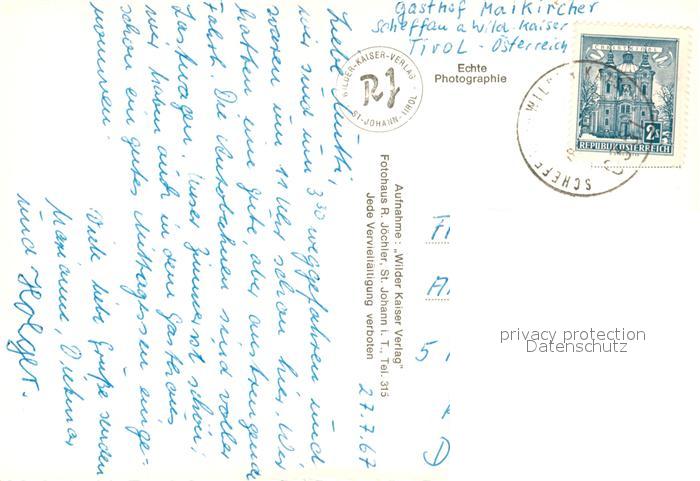 Gasthof Maikircher
Scheffau a Wild. Kaiser
Tirol - Österreich
Echte
Photographie
WILDER-KAISER-VERLAG
RJ
ST-JOHANN-TIROL
CHRISTKINDL
2S
REPUBLIK ÖSTERREICH
WILD
SCHEFF
Aufnahme: „Wilder Kaiser Verlag"
Fotohaus R. Jöchler, St. Johann i. T., Tel. 315
Jede Vervielfältigung verboten
27.7.67
Liebe Mutti,
wir sind um 3.30 weggefahren und
waren um 11 Uhr schon hier. Wir
hatten eine gute, aber anstrengende
Fahrt. Die Autobahnen sind voller
Lastwagen. Unser Zimmer ist schön,
wir haben auch in dem Gasthaus
schon ein gutes Mittagessen einge-
nommen.
Viele liebe Grüße senden
Marianne, Dietmar
und Holger.
Fr
A
5
D
privacy protection
Datenschutz